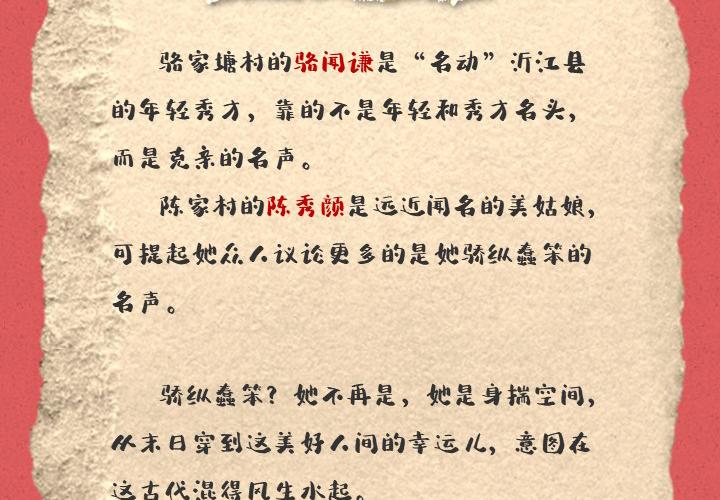 骆家塘村的骆闻谦是“名动”沂江县
的年轻秀才，靠的不是年轻和秀才名头，
而是克亲的名声。
陈家村的陈秀颜是远近闻名的美姑娘，
可提起她众人议论更多的是她骄纵蠢笨的
名声。
骄纵蠢笨？她不再是，她是身揣空间，
从末日穿到这美好人间的幸运儿，意图在
这古代混得风生水起。